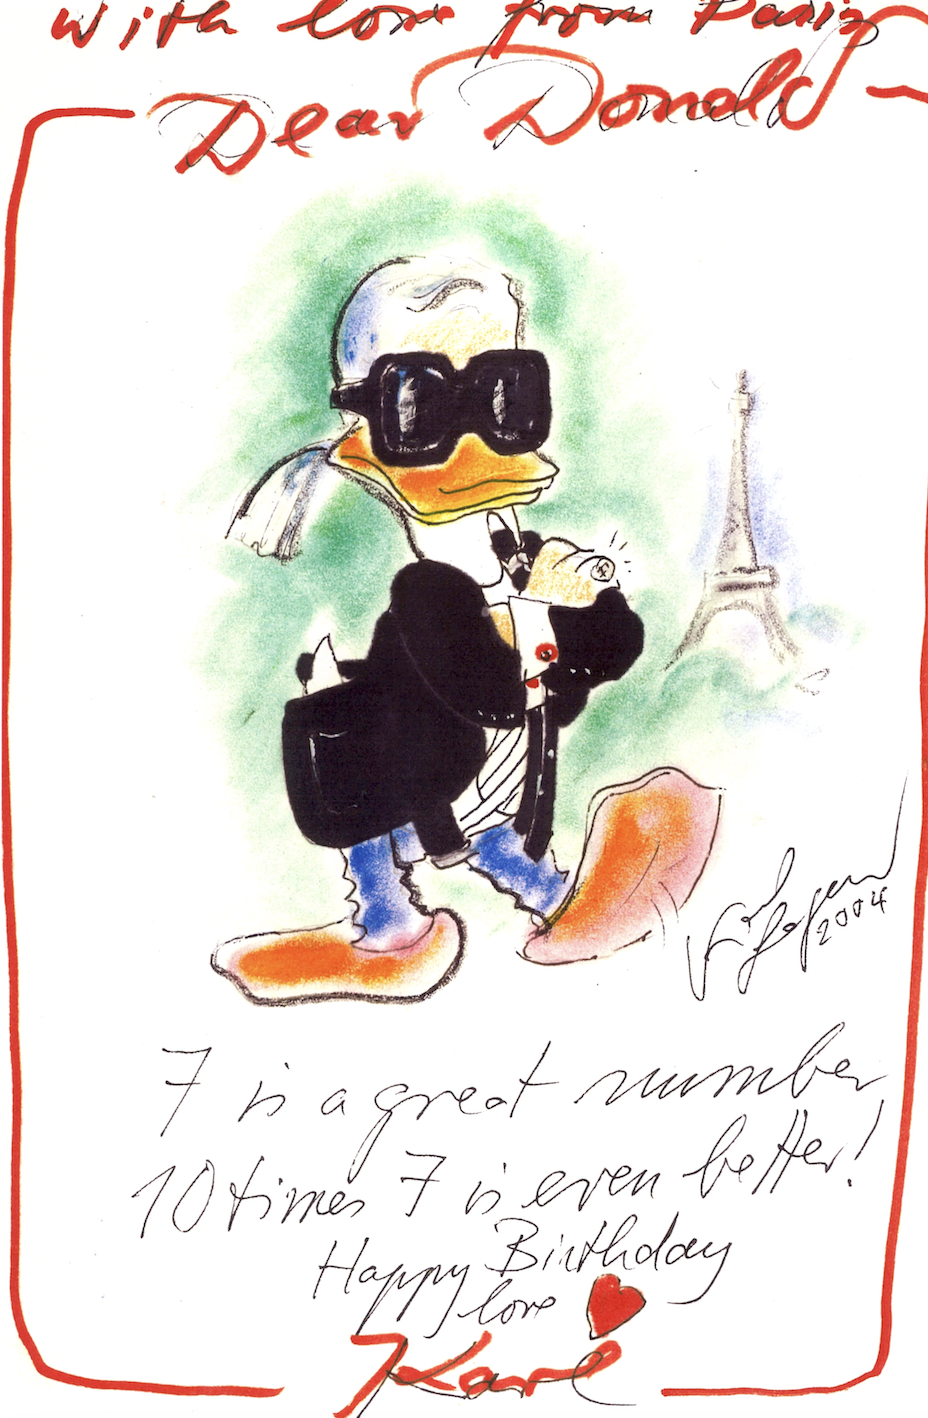 With love from Paris
Dear Donald
Karl Lagerfeld
2004
7 is a great number
10 times 7 is even better!
Happy Birthday
love
Karl